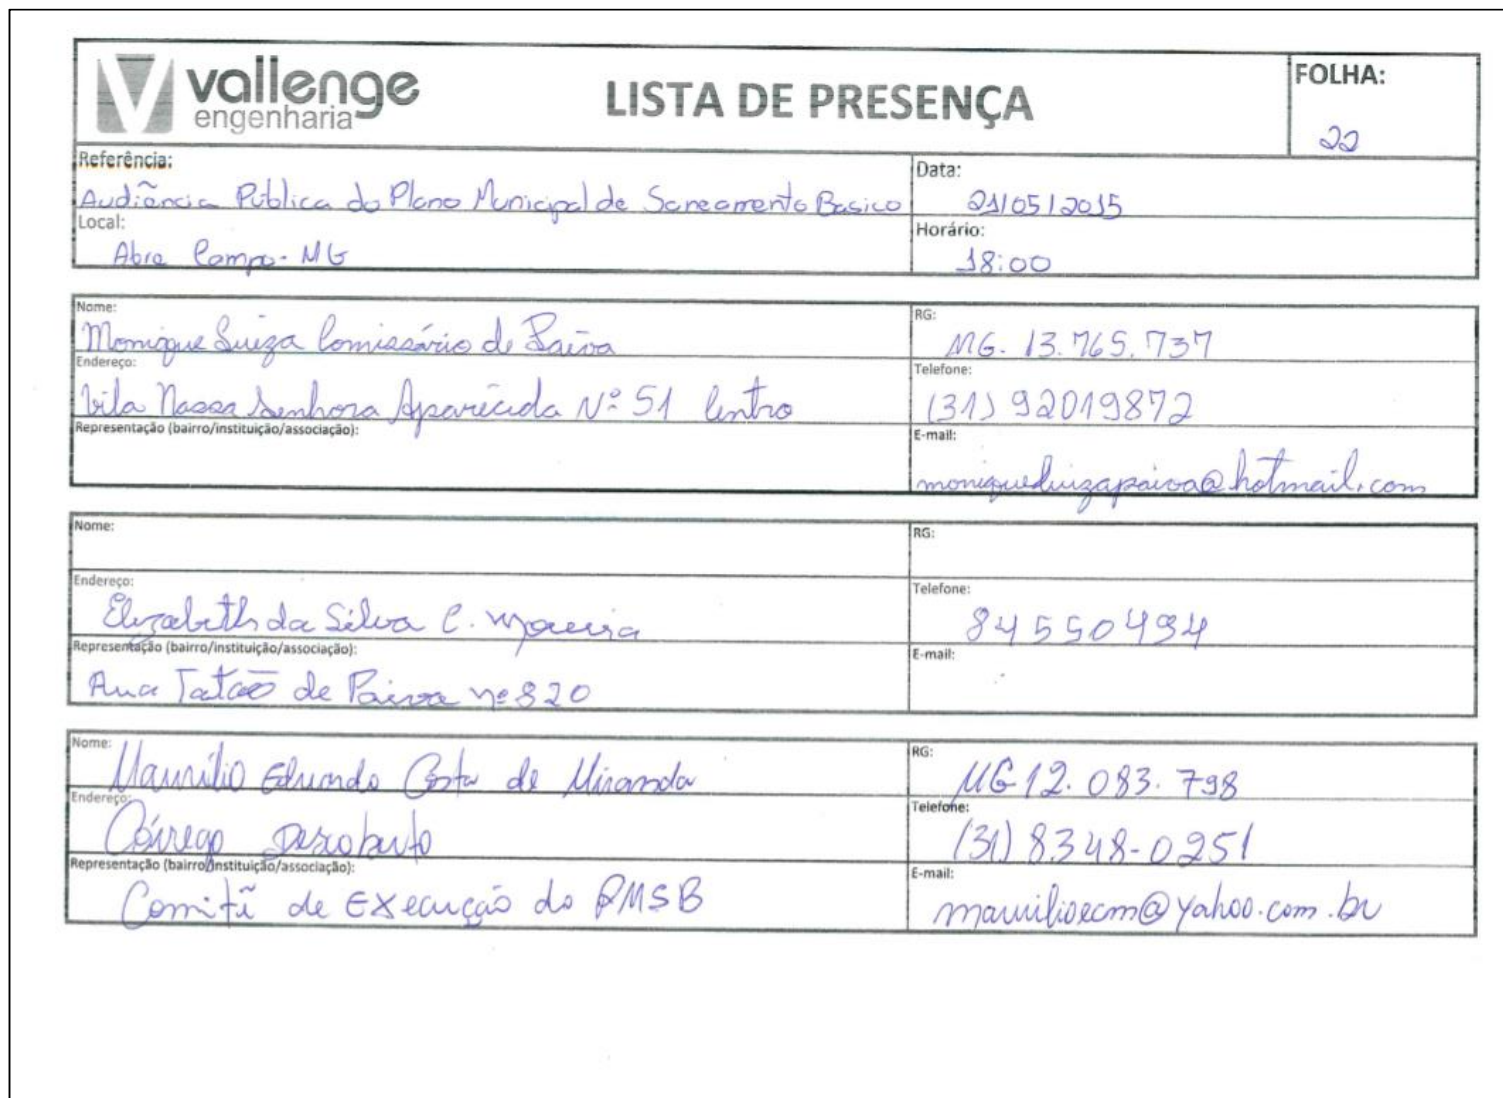 vallenge
engenharia
LISTA DE PRESENÇA
FOLHA:
22
Referência:
Audiência Pública do Plano Municipal de Saneamento Basico
Data:
21/05/2015
Local:
Abre Campo - MG
Horário:
18:00
Nome:
Monique Luiza Comissário de Paiva
RG:
MG. 13.765.737
Endereço:
Vila Nossa Senhora Aparecida Nº 51 Centro
Telefone:
(31) 92019872
Representação (bairro/instituição/associação):
E-mail:
moniqueluizapaiva@hotmail.com
Nome:
RG:
Endereço:
Elizabeth da Silva C. Moreira
Telefone:
84550494
Representação (bairro/instituição/associação):
Rua Tatão de Paiva nº 820
E-mail:
Nome:
Maurílio Eduardo Costa de Miranda
RG:
MG 12.083.798
Endereço:
Córrego Descoberto
Telefone:
(31) 8348-0251
Representação (bairro/instituição/associação):
Comitê de Execução do PMSB
E-mail:
maurilioecm@yahoo.com.br